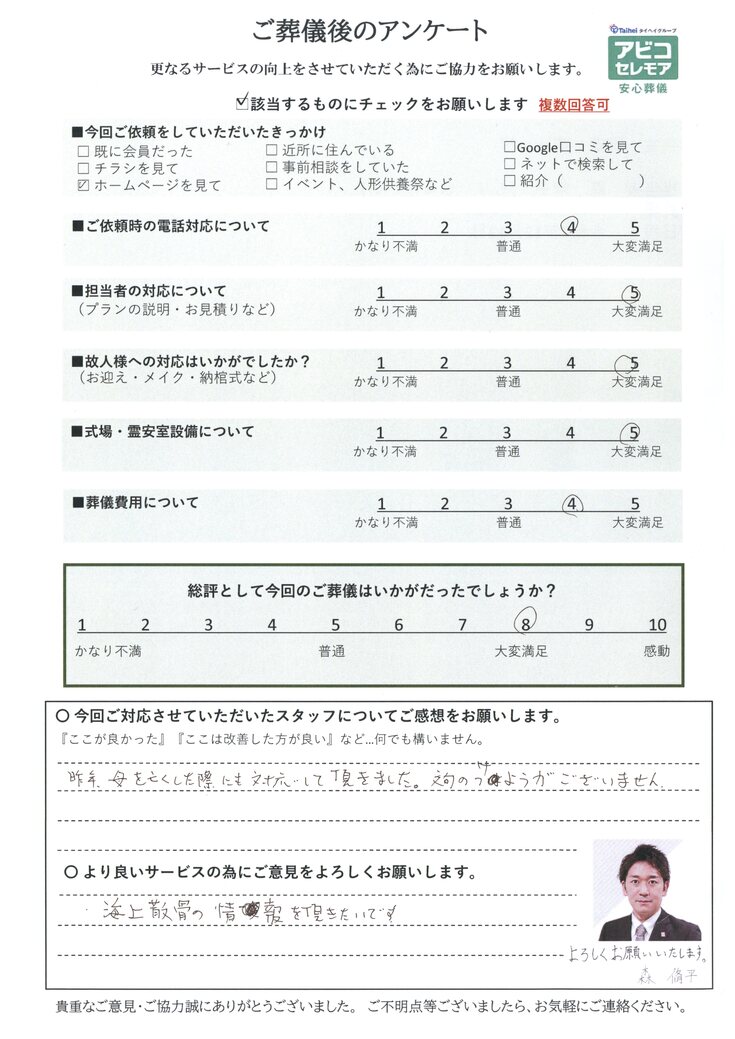 ご葬儀後のアンケート
Taihei タイヘイグループ
アビコ
セレモア
安心葬儀
更なるサービスの向上をさせていただく為にご協力をお願いします。
☑該当するものにチェックをお願いします 複数回答可
■今回ご依頼をしていただいたきっかけ
□ 既に会員だった □ 近所に住んでいる □Google口コミを見て
□ チラシを見て □ 事前相談をしていた □ ネットで検索して
☑ ホームページを見て □ イベント、人形供養祭など □ 紹介（ ）
■ご依頼時の電話対応について 1 2 3 4 5
かなり不満 普通 大変満足
■担当者の対応について 1 2 3 4 5
（プランの説明・お見積りなど） かなり不満 普通 大変満足
■故人様への対応はいかがでしたか？ 1 2 3 4 5
（お迎え・メイク・納棺式など） かなり不満 普通 大変満足
■式場・霊安室設備について 1 2 3 4 5
かなり不満 普通 大変満足
■葬儀費用について 1 2 3 4 5
かなり不満 普通 大変満足
総評として今回のご葬儀はいかがだったでしょうか？
1 2 3 4 5 6 7 8 9 10
かなり不満 普通 大変満足 感動
〇 今回ご対応させていただいたスタッフについてご感想をお願いします。
『ここが良かった』『ここは改善した方が良い』など…何でも構いません。
昨年、母を亡くした際にも対応して頂きました。文句のつけようがございません。
〇 より良いサービスの為にご意見をよろしくお願いします。
・海上散骨の情報を頂きたいです
よろしくお願いいたします。
森 脩平
貴重なご意見・ご協力誠にありがとうございました。 ご不明点等ございましたら、お気軽にご連絡ください。